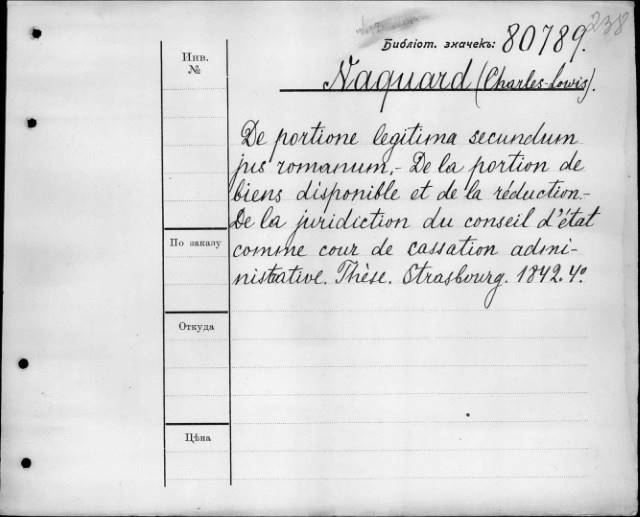 238
Библіот. значекъ: 80789.
Инв.
№
Naquard (Charles-Lowis).
De portione legitima secundum
jus romanum,- De la portion de
biens disponible et de la réduction.-
De la juridiction du conseil d'état
По заказу
comme cour de cassation admi-
nistrative. Thèse. Strasbourg. 1842. 4º.
Откуда
Цѣна